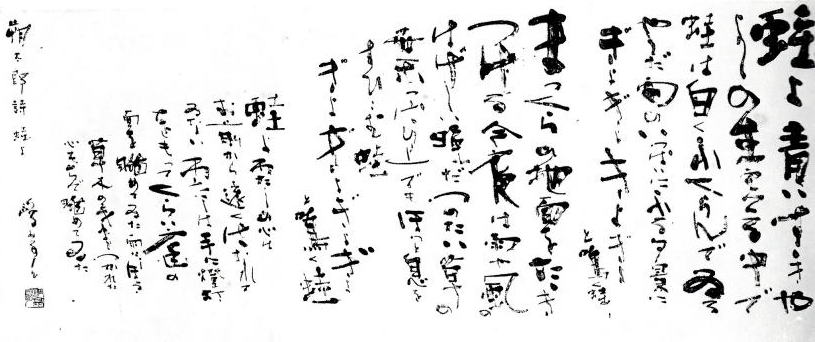 蛙よ青いすすきや
よしの生えてる中で
蛙は白くふくらんでゐる
やうだ雨のいつぱいにふる夕景に
ぎよぎよぎよぎよ
と鳴く蛙
まつくらの地面をたたき
つける今夜は雨や風の
はげしい晩だつめたい草の
葉つぱの上でもほつと息を
すひこむ蛙
ぎよぎよぎよぎよ
と鳴く蛙
蛙よわたしの心は
お前から遠くはなれて
ゐないわたしは手に燈灯
をもつてくらい庭の
面を眺めてゐた雨にしほるる
草木の葉をつかれた
心もちで眺めてゐた
朔太郎詩 蛙よ